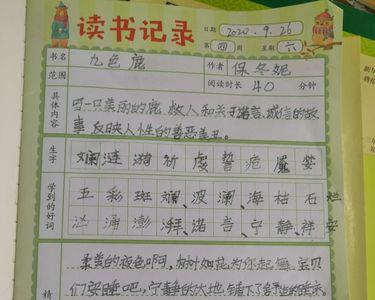 读书记录
日期 2020.9.26
第 四 周 星期 六
书名 九色鹿 作者 保冬妮
范围 阅读时长 40 分钟
具体内容
一只美丽的鹿, 救人和关于诺言、诚信的故
事, 反映人性的善恶美丑。
生字 斓 涟 漪 虔 誓 疮 魇 婪
学到的好词
五彩斑斓、波澜、海枯石烂
汹涌澎湃、诺言、宁静、祥安
精
柔美的夜色,树叶如花为你起舞,宝贝
们安睡吧,宁静的大地